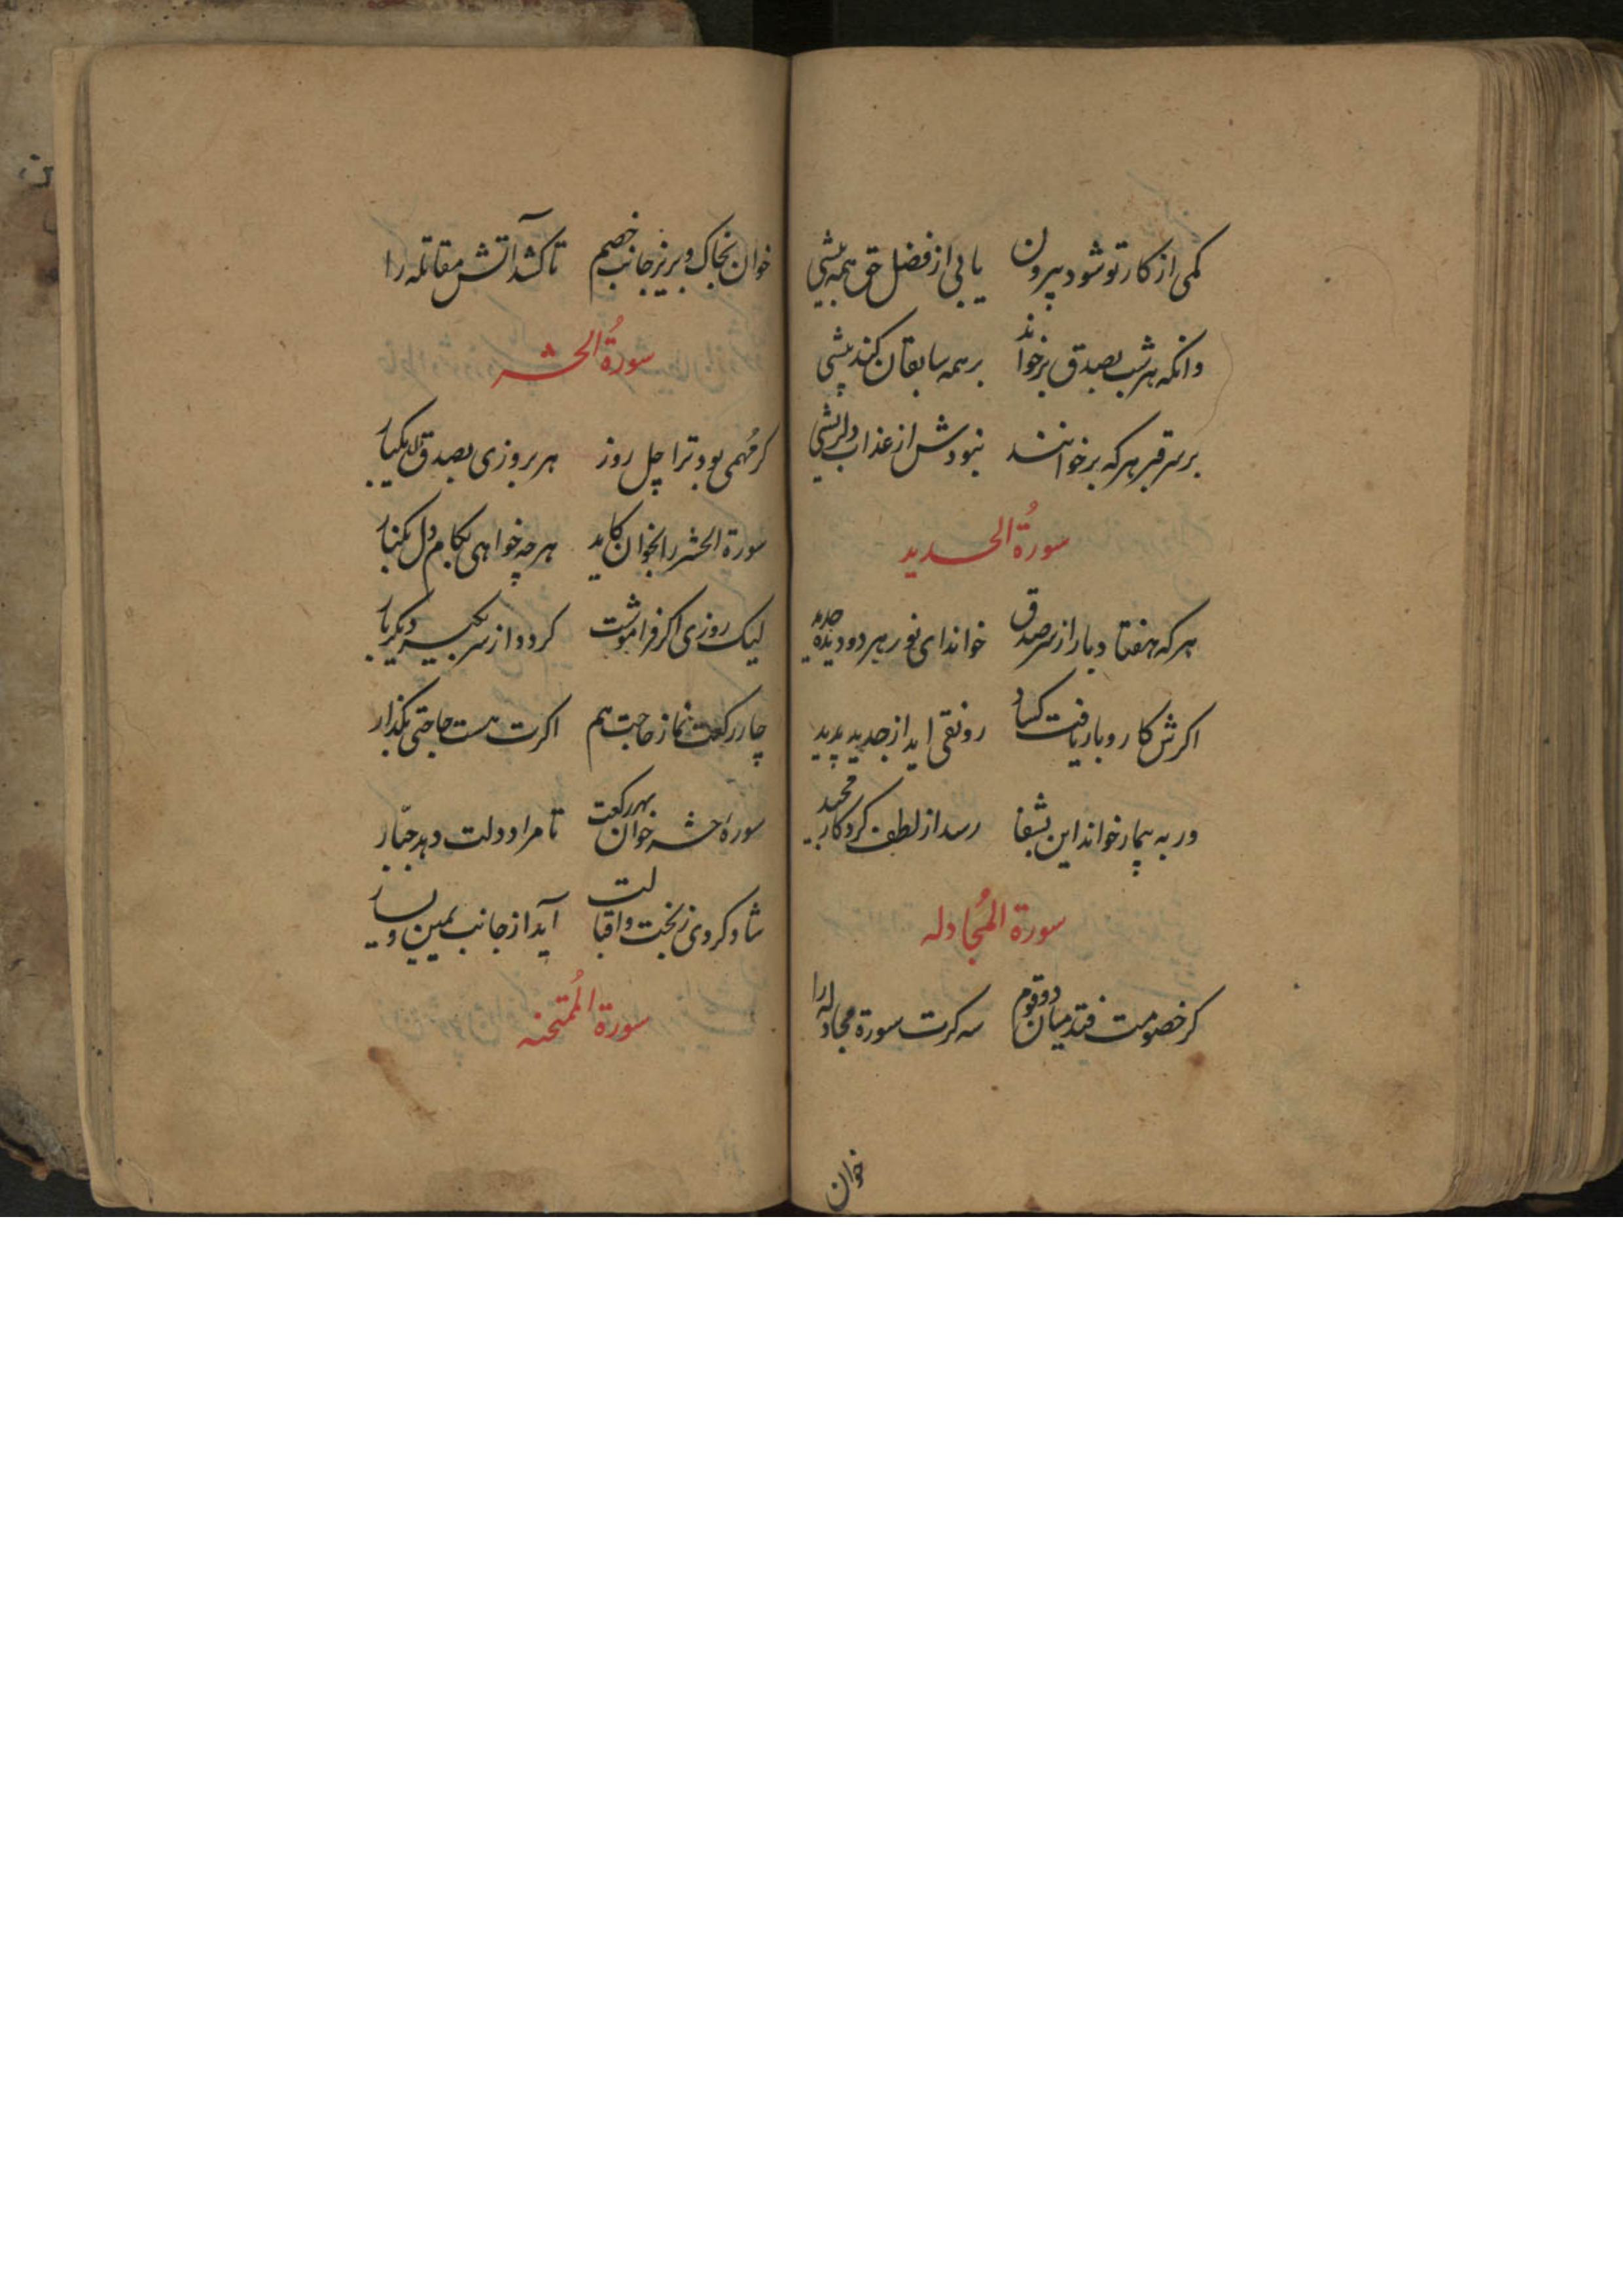 کمی از کار تو شود بیرون یابی از فضل حق همه بیشی
وانکه هر شب بصدق برخواند بر همه سابقان کند پیشی
بر سر قبر هر که برخوانند نبودش از عذاب دلریشی
سورة الحدید
هر که هفتاد بار از سر صدق خواند ای نور هر دو دیده حدید
اکرش کار و بار یافت کساد رونقی اید از جدید پدید
ور به بیمار خواند این بشفا رسد از لطف کردکار مجید
سورة المجادله
کر خصومت فتد میان دو قوم سه کرت سورة مجادله را
خوان
خوان بخاک و بریز جانب خصم تا کشد آتش مقاتله را
سورة الحشر
کر مُهمی بود ترا چل روز هر بروزی بصدق دل یکبار
سورة الحشر را بخوان کاید هر چه خواهی بکام دل بکنار
لیک روزی اکر فراموشت کردد از سر بکیر دیکر بار
چار رکعت نماز حاجت هم اکرت هست حاجتی بکذار
سورهٔ حشر خوان بهر رکعت تا مراد دلت دهد جبّار
شاد کردی ز بخت و اقبالت آید از جانب یمین و یسار
سورة المُمتحنه